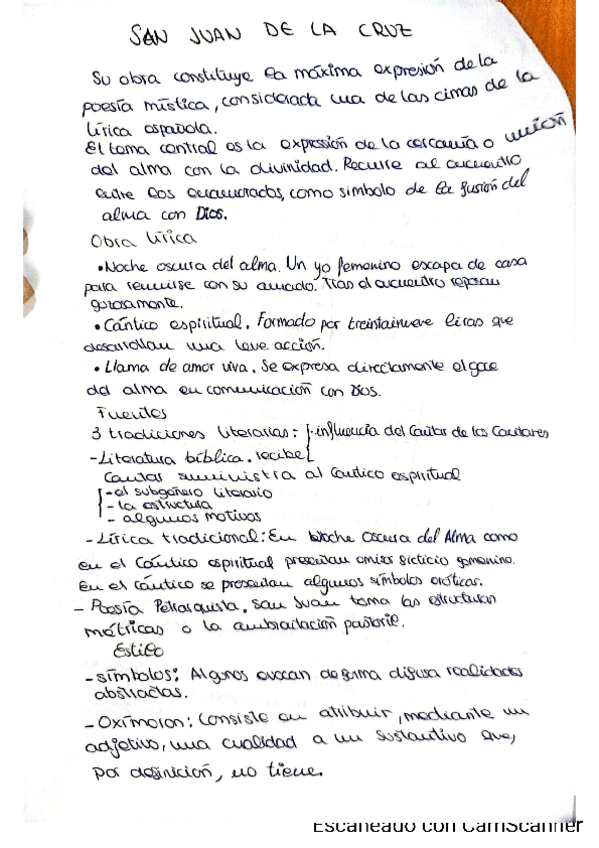 SAN JUAN DE LA CRUZ
Su obra constituye la máxima expresión de la
poesía mística, considerada una de las cimas de la
lírica española.
El tema central es la expresión de la cercanía o unión
del alma con la divinidad. Recurre al encuentro
entre los enamorados, como símbolo de la fusión del
alma con Dios.
Obra lírica
• Noche oscura del alma. Un yo femenino escapa de casa
para reunirse con su amado. Tras el encuentro reposan
gozosamente.
• Cántico espiritual. Formado por treintainueve liras que
desarrollan una leve acción.
• Llama de amor viva. Se expresa directamente el goce
del alma en comunicación con Dios.
Fuentes
3 tradiciones literarias: - influencia del Cantar de los Cantares
- Literatura bíblica. recibe
Cantar suministra al Cántico espiritual
- el subgénero literario
- la estructura
- algunos motivos
- Lírica tradicional: En Noche oscura del Alma como
en el Cántico espiritual presentan emisor ficticio femenino.
En el cántico se presentan algunos símbolos eróticas.
- Poesía Petrarquista. San Juan toma las estructuras
métricas o la ambientación pastoril.
Estilo
- símbolos: Algunos evocan de forma difusa realidades
abstractas.
- Oxímoron: Consiste en atribuir, mediante un
adjetivo, una cualidad a un sustantivo que,
por definición, no tiene.
Escaneado con CamScanner